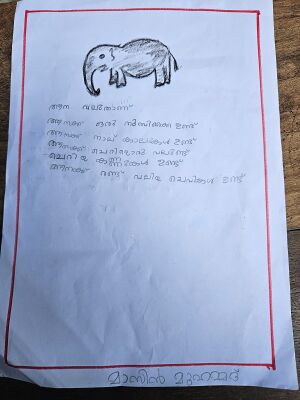 ആന വലുതാണ്
ആനക്ക് ഒരു തുമ്പിക്കൈ ഉണ്ട്
ആനക്ക് നാല് കാലുകൾ ഉണ്ട്
ആനക്ക് ചെറിയ വാലുണ്ട്
ചെറിയ കണ്ണുകൾ ഉണ്ട്
ആനക്ക് രണ്ട് വലിയ ചെവികൾ ഉണ്ട്
മാസിൻ മുഹമ്മദ്